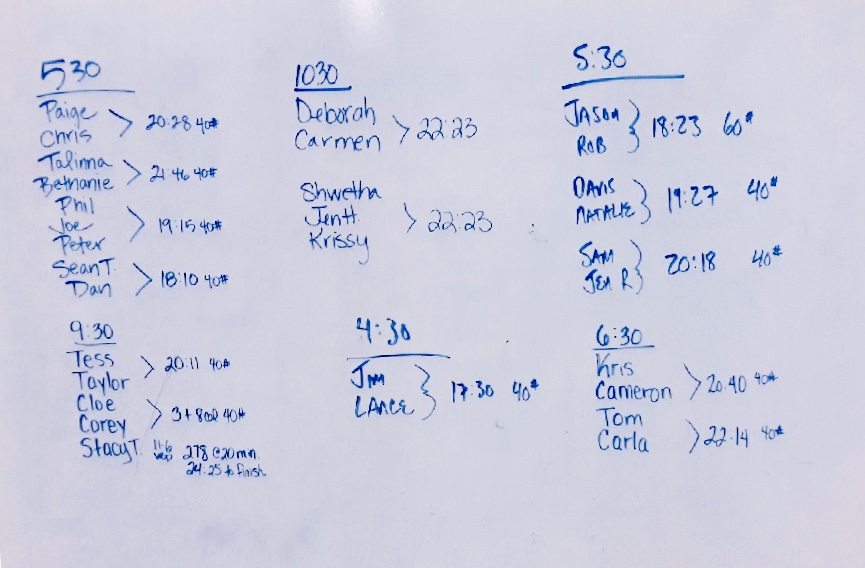 530
Paige
Chris
20:28 40#
Talinna
Bethanie
21:46 40#
Phil
Joe
Peter
19:15 40#
Sean T.
Dan
18:10 40#
1030
Deborah
Carmen
22:23
Shwetha
Jen H.
Krissy
22:23
5:30
JASON
ROB
18:23 60#
DAVIS
NATALIE
19:27 40#
SAM
JEN R
20:18 40#
9:30
Tess
Taylor
20:11 40#
Cloe
Corey
40#
Stacy T. 278 @20 min.
24:25 to finish
4:30
JIM
LANCE
17:30 40#
6:30
Kris
Cameron
20:40 40#
Tom
Carla
22:14 40#